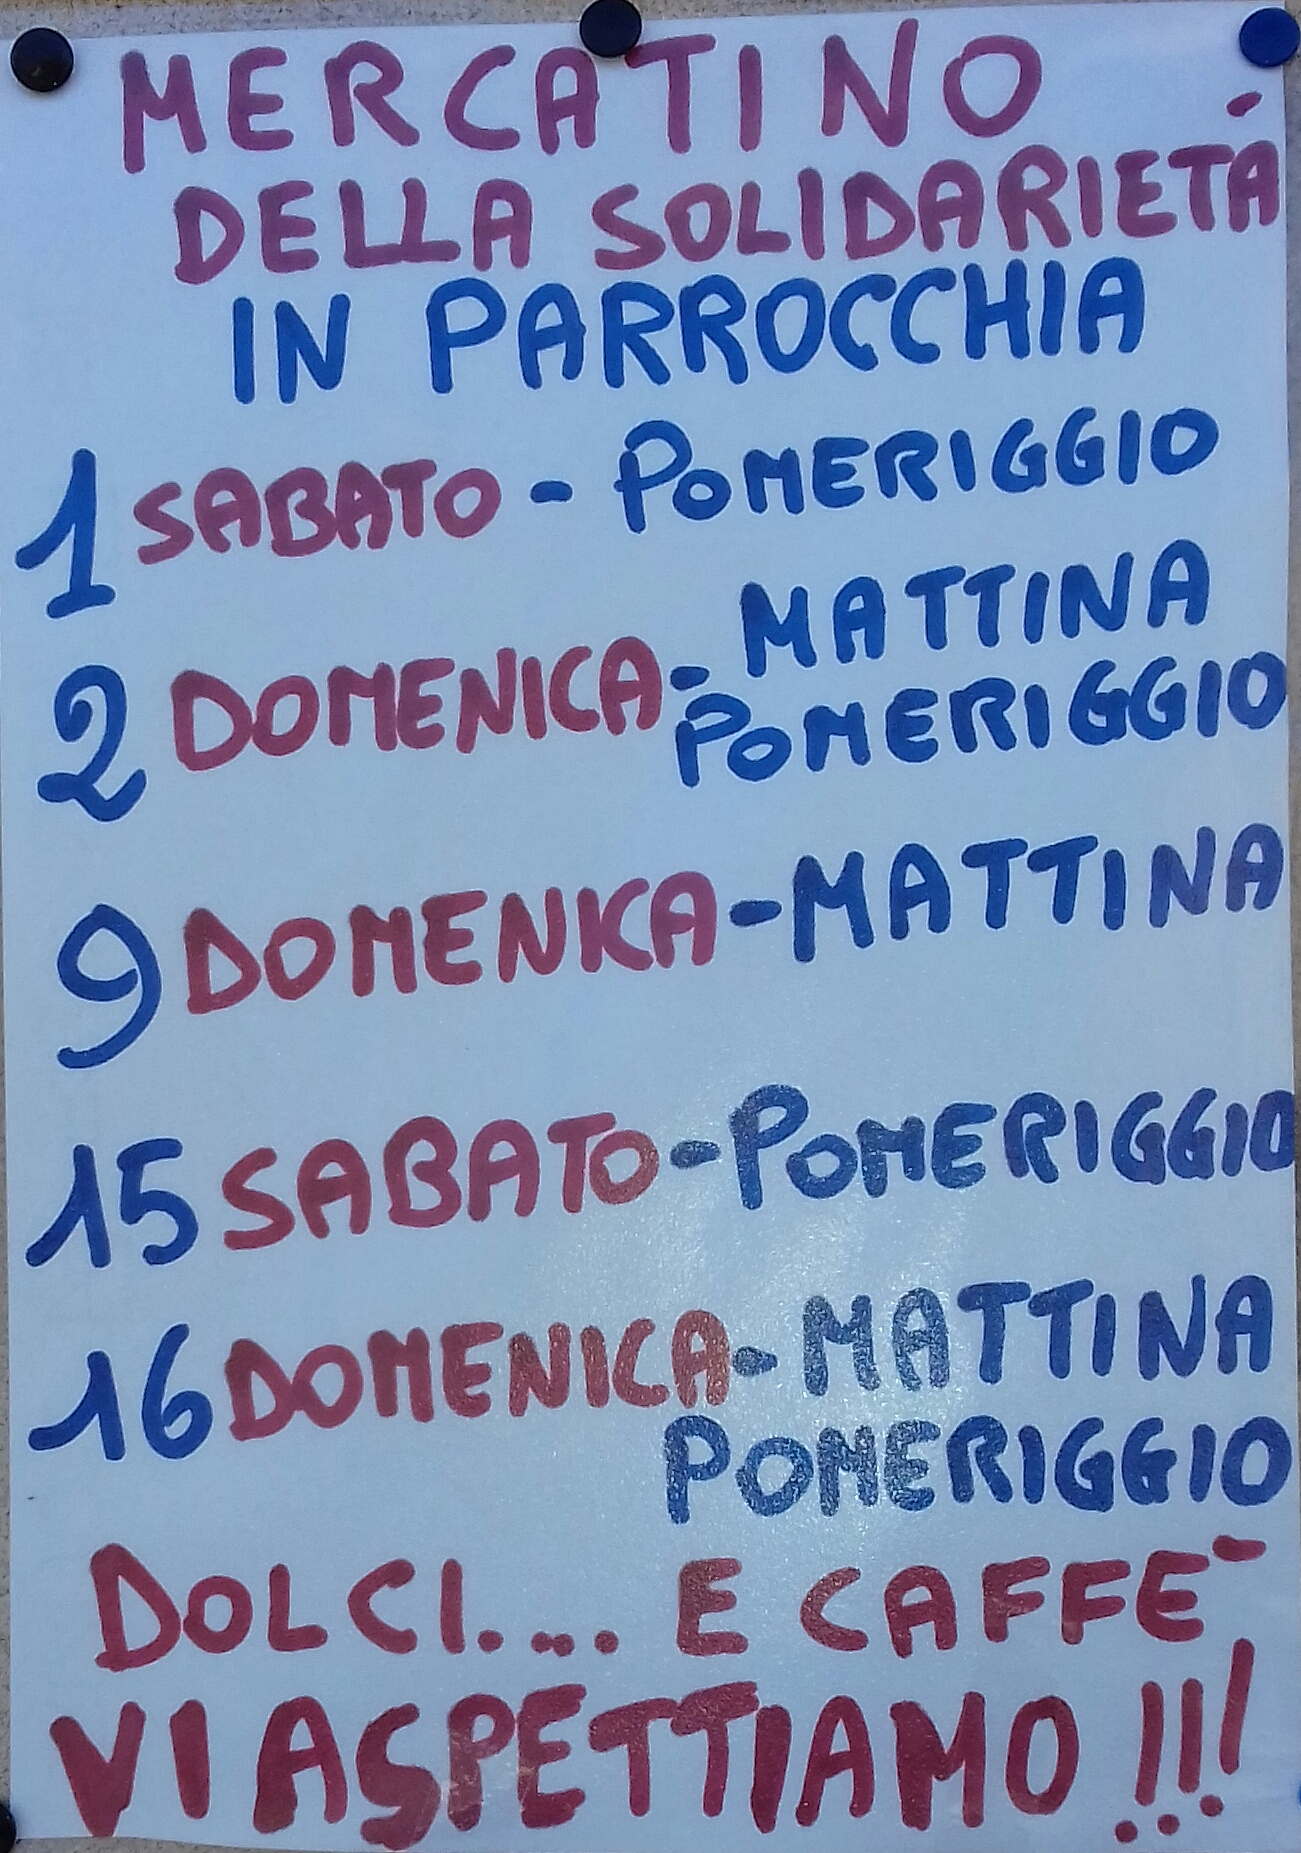 MERCATINO
DELLA SOLIDARIETÀ
IN PARROCCHIA
1 SABATO - POMERIGGIO
2 DOMENICA - MATTINA
POMERIGGIO
9 DOMENICA - MATTINA
15 SABATO - POMERIGGIO
16 DOMENICA - MATTINA
POMERIGGIO
DOLCI.... E CAFFÈ
VI ASPETTIAMO !!!